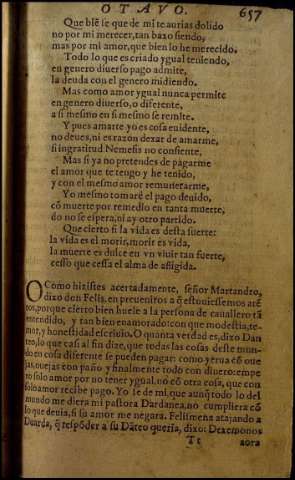 OTAVO. 657
Que biē se que de mi te aurias dolido
no por mi merecer, tan baxo siendo,
mas por mi amor, que bien lo he merecido.
Todo lo que es criado ygual teniendo,
en genero diuerso pago admite,
la deuda con el genero midiendo.
Mas como amor ygual nunca permite
en genero diuerso, o diferente,
a si mesmo en si mesmo se remite.
Y pues amarte yo es cosa euidente,
no deues, ni es razon dexar de amarme,
si ingratitud Nemesis no consiente,
Mas si ya no pretendes de pagarme
el amor que te tengo y he tenido,
y con el mesmo amor remunerarme,
Yo mesmo tomarè el pago deuido,
cō muerte por remedio en tanta muerte,
do no se espera, ni ay otro partido.
Que cierto si la vida es desta suerte:
la vida es el morir, morir es vida,
la muerte es dulce en vn viuir tan fuerte,
cesso que cessa el alma de afligida.
O Como hizistes acertadamente, señor Martandro,
dixo don Felis, en preueniros a q̄ estuuiessemos atē
tos, porque cierto bien huele a la persona de cauallero tā
entendido, y tan bien enamorado: con que modestia, te-
mor, y honestidad escriuio. O quanta verdad es, dixo Dan
teo, lo que casi al fin dize, que todas las cosas deste mun-
do en cosa diferente se pueden pagar: como yerua cō oue
jas, ouejas con paño y finalmente todo con dinero: empe
ro solo amor por no tener ygual, no cō otra cosa, que con
solo amor recibe pago. Yo se de mi, que aunq̄ todo lo del
mundo me diera mi pastora Dardanea, no cumpliera cō
lo que deuia, si su amor me negara. Felismena atajando a
Duarda, q̄ respōder a su Dāteo queria, dixo:
Tt aora